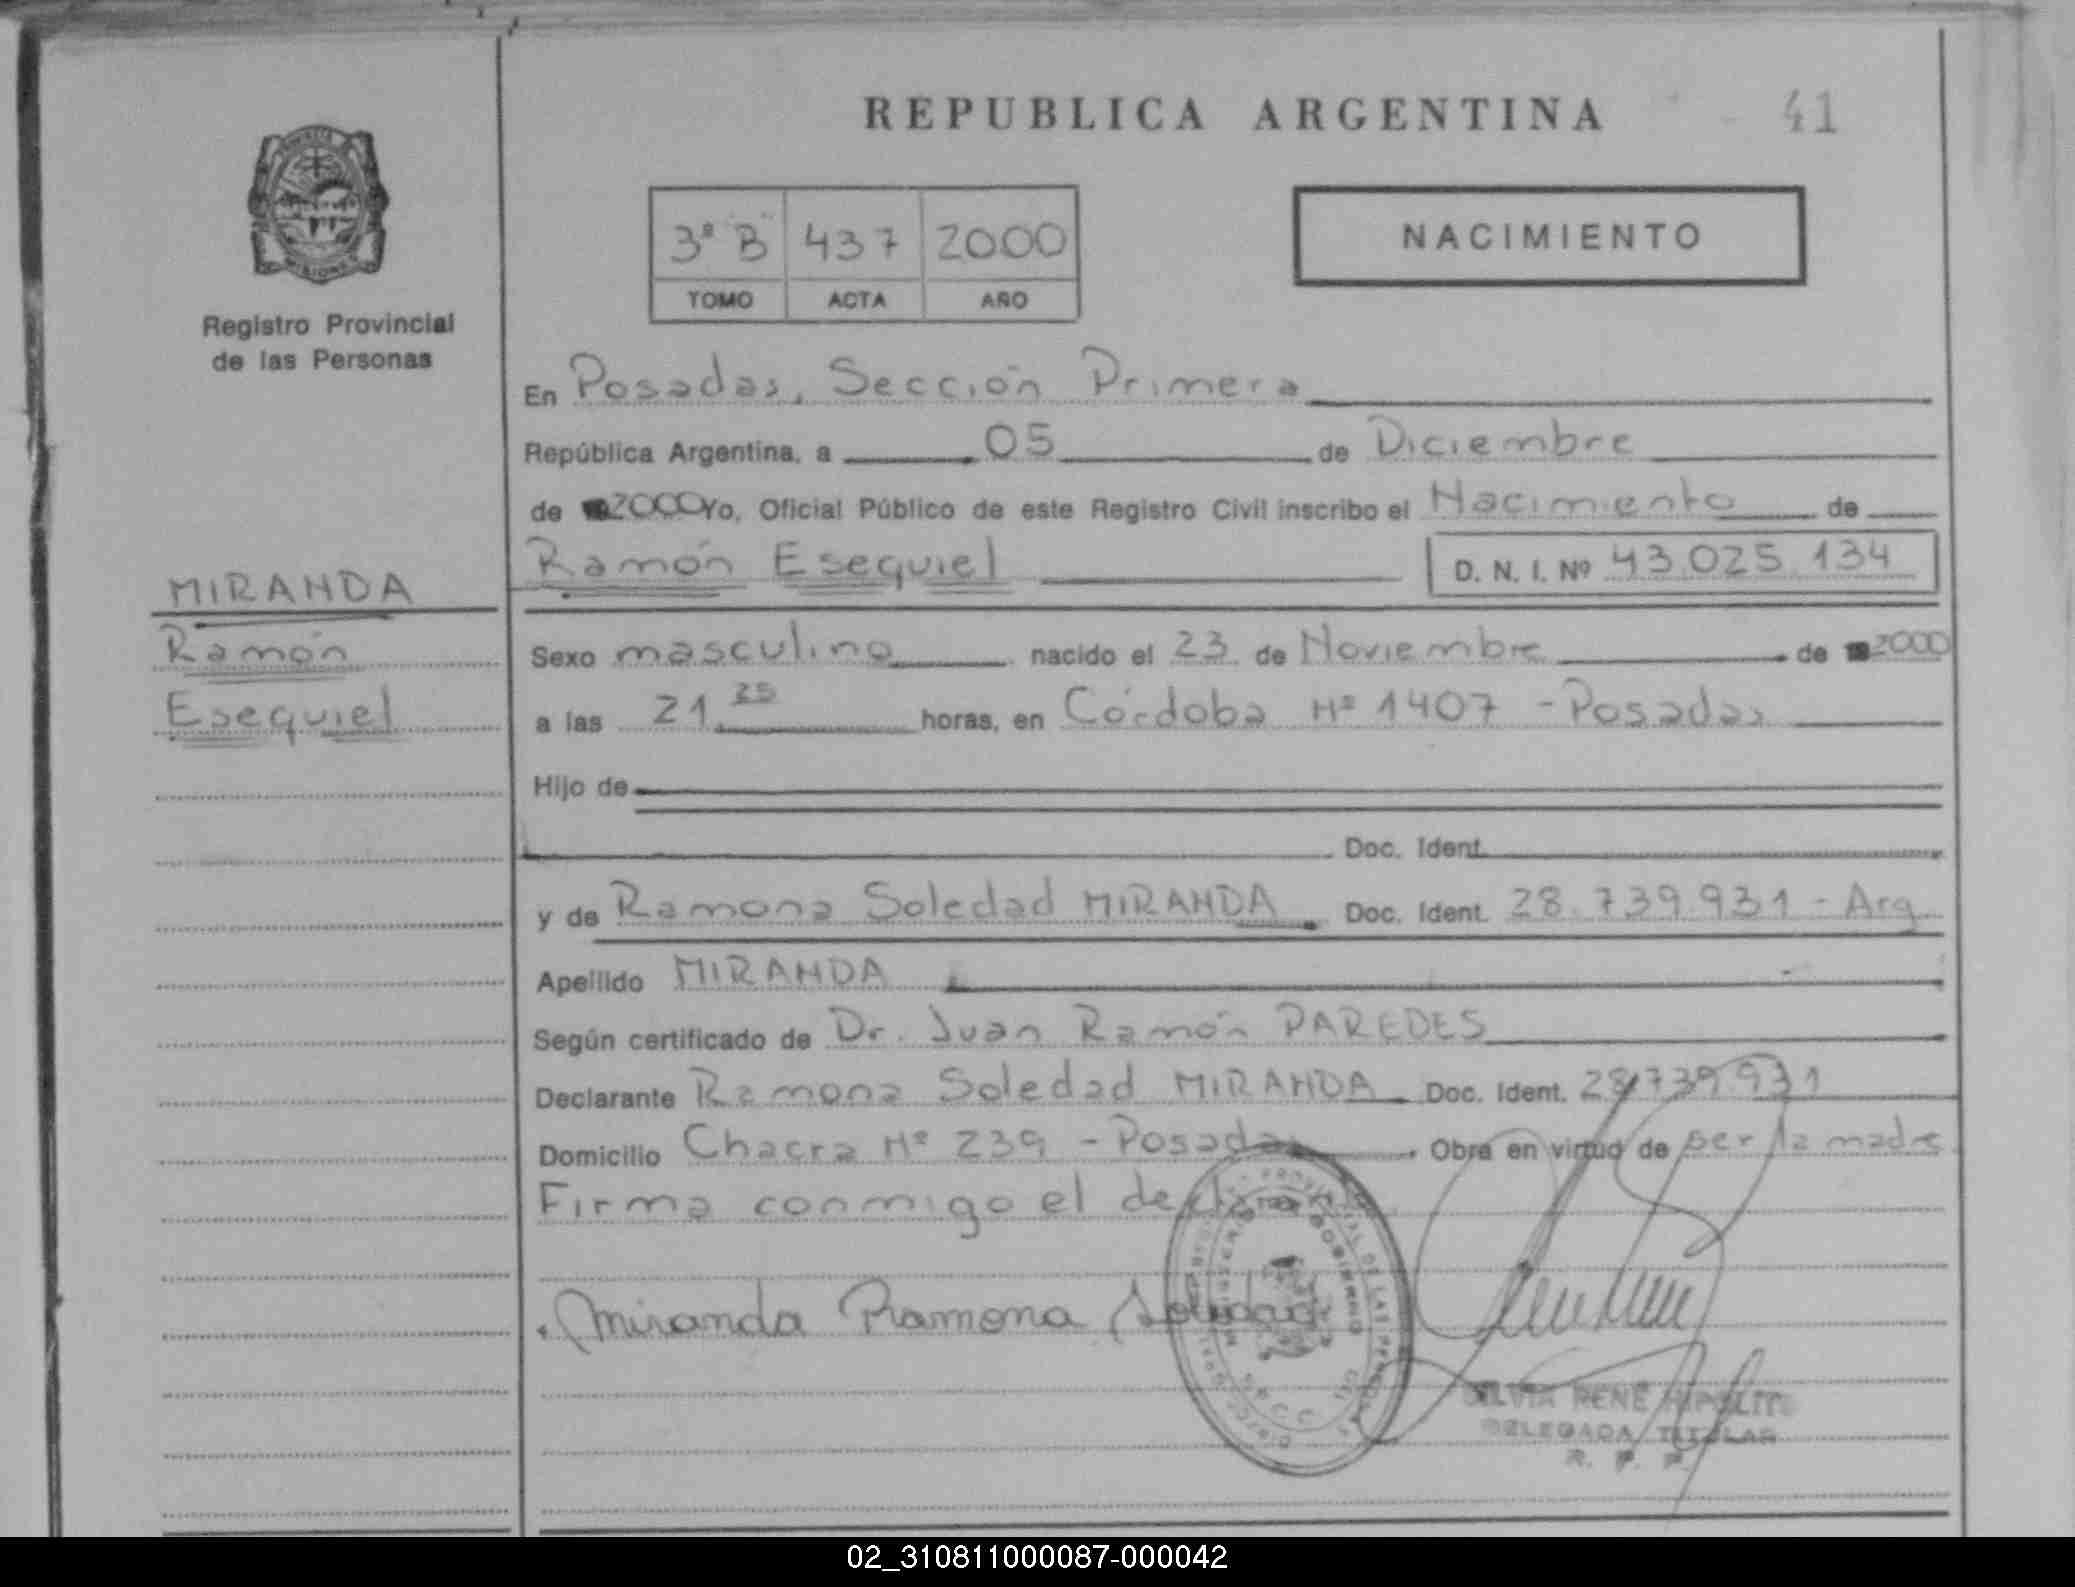 REPUBLICA ARGENTINA
41
MISIONES
Registro Provincial
de las Personas
3º "B" 437 2000
TOMO ACTA AÑO
NACIMIENTO
En Posadas, Sección Primera
República Argentina, a 05 de Diciembre
de 2000 Yo, Oficial Público de este Registro Civil inscribo el Nacimiento de
Ramón Esequiel D. N. I. Nº 43.025.134
MIRANDA
Ramón
Esequiel
Sexo masculino nacido el 23 de Noviembre de 2000
a las 21.25 horas, en Córdoba Nº 1407 - Posadas
Hijo de
Doc. Ident.
y de Ramona Soledad MIRANDA Doc. Ident. 28.739.931 - Arg
Apellido MIRANDA
Según certificado de Dr. Juan Ramón PAREDES
Declarante Ramona Soledad MIRANDA Doc. Ident. 28.739.931
Domicilio Chacra Nº 239 - Posadas Obra en virtud de ser la madre
Firma conmigo el
Miranda Ramona Soledad
SILVIA RENÉ HIPOLITO
DELEGADA TITULAR
R. P. P.
02_310811000087-000042